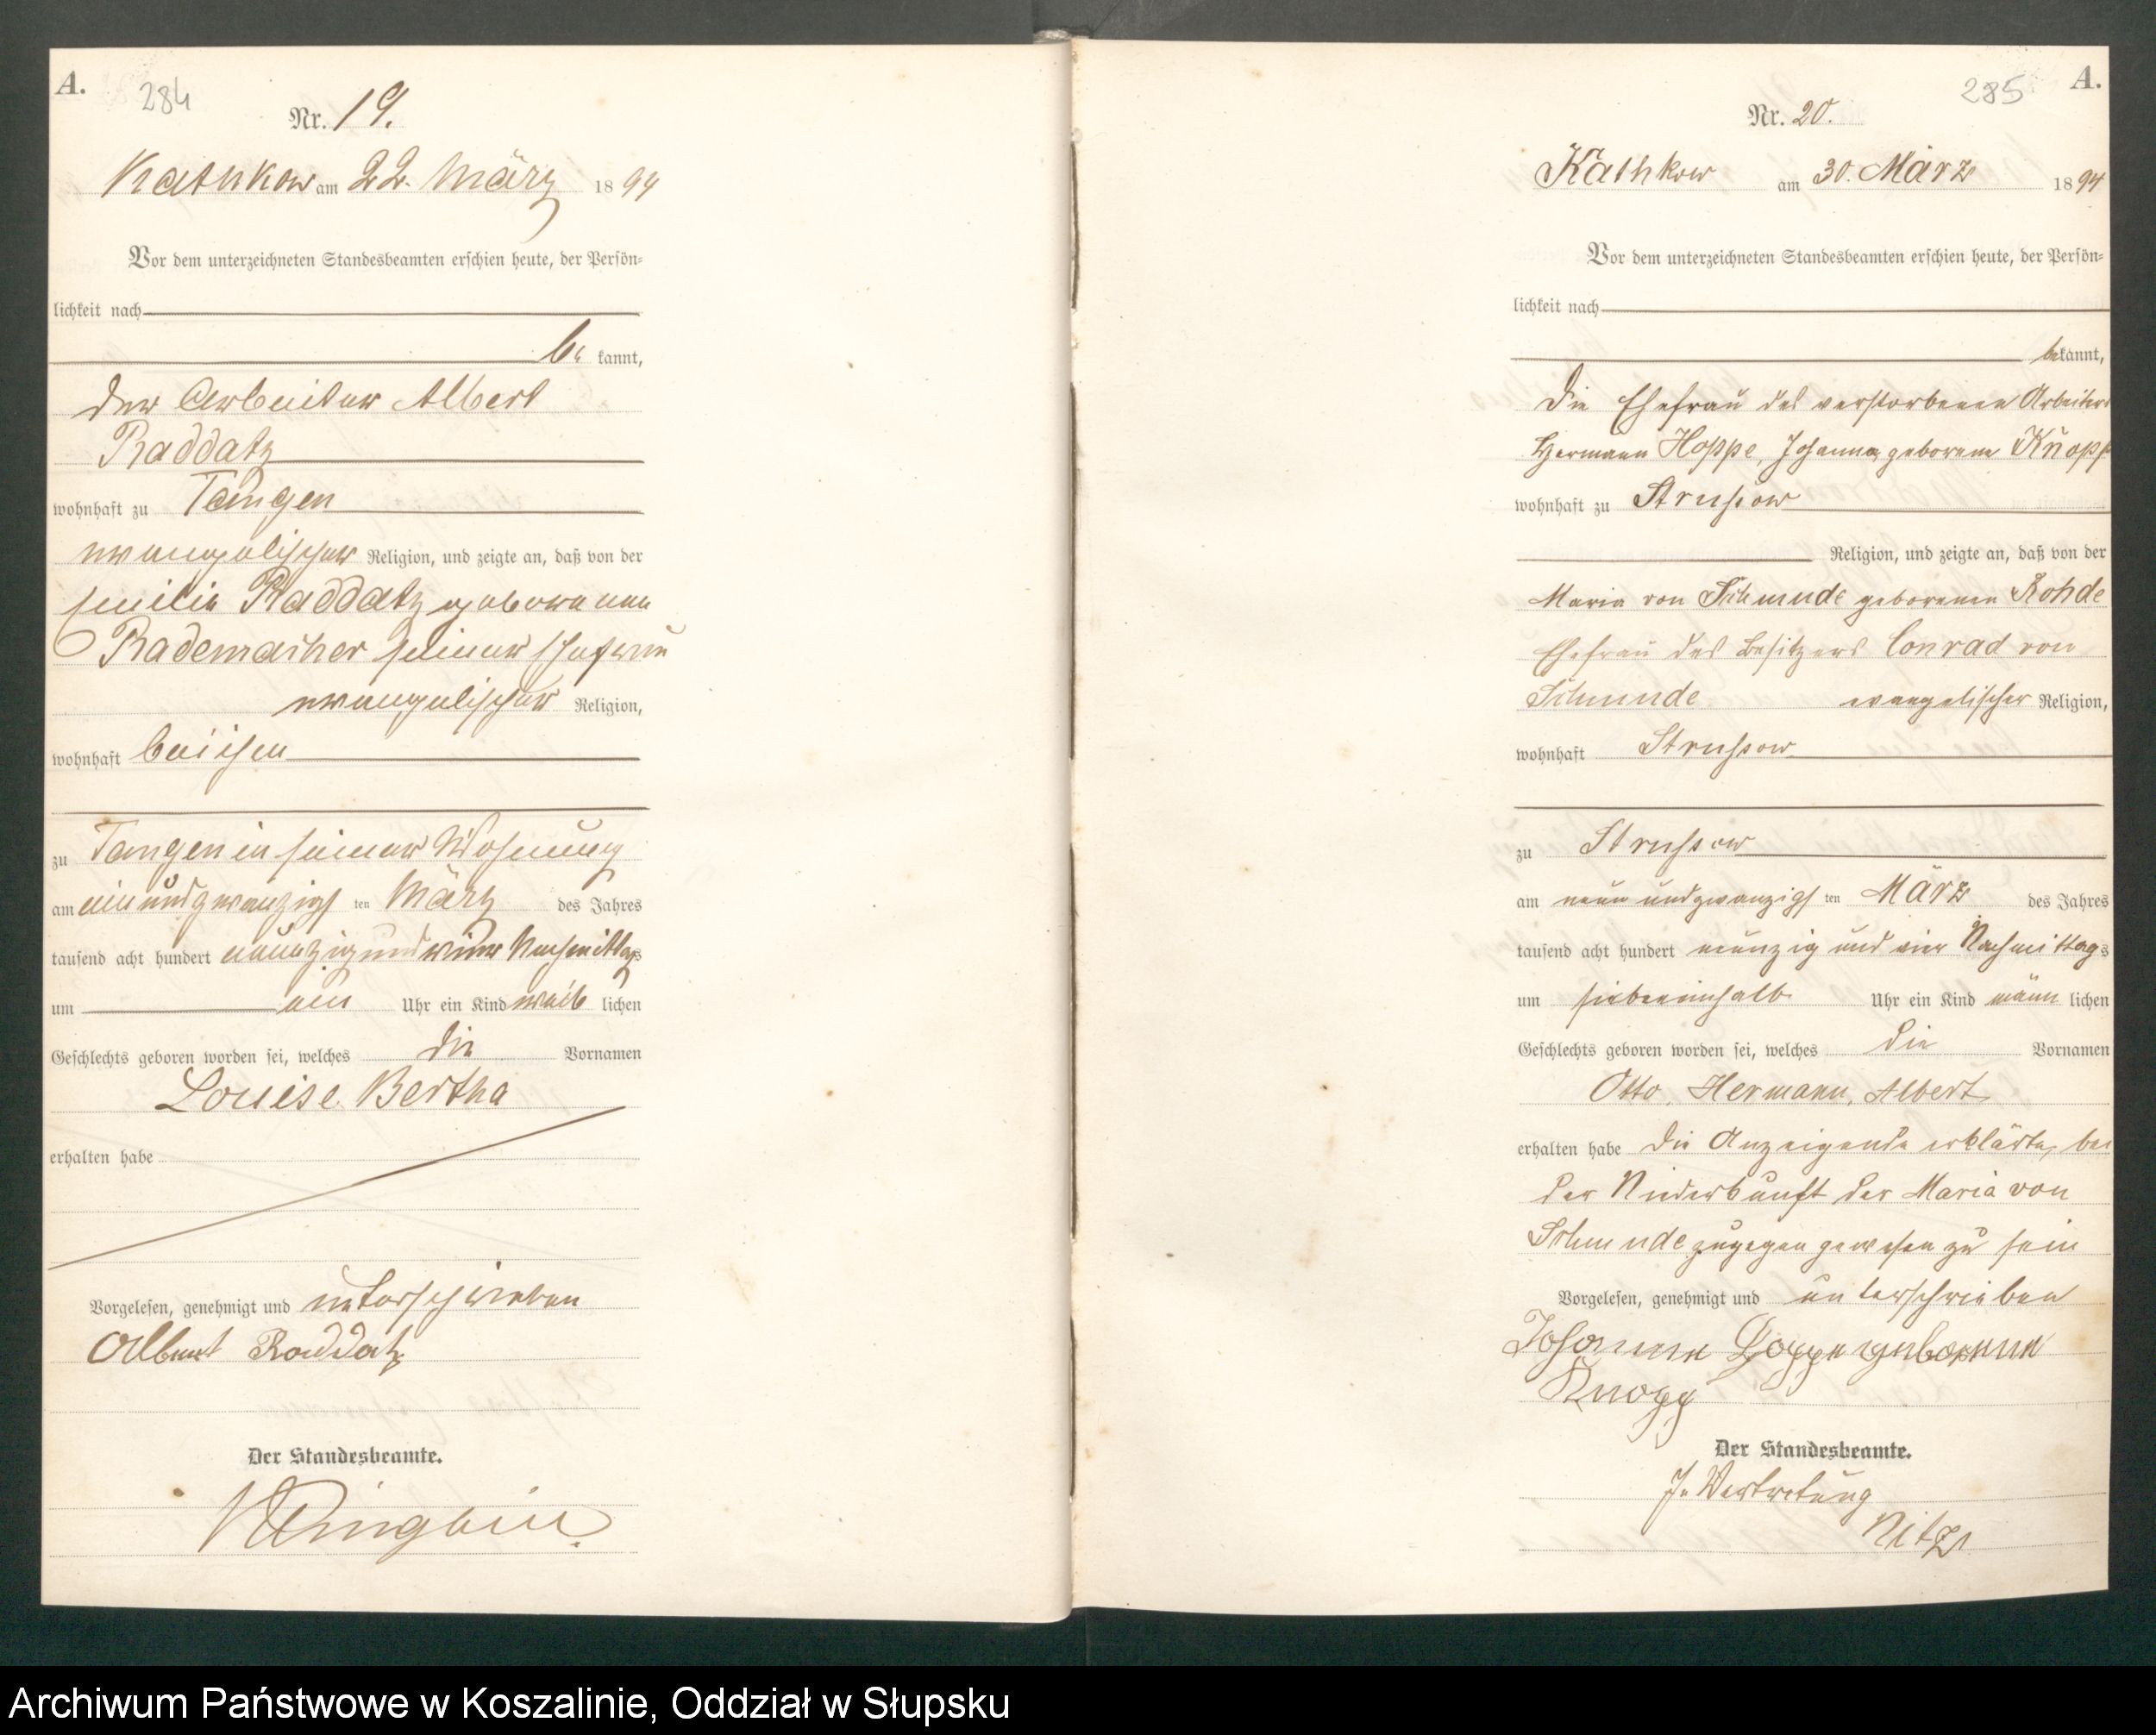 A.
284
Nr. 19.
Kathkow am 22. März 1894
Vor dem unterzeichneten Standesbeamten erschien heute, der Persön-
lichkeit nach
be kannt,
der Arbeiter Albert
Raddatz
wohnhaft zu Tangen
evangelischer Religion, und zeigte an, daß von der
Emilie Raddatz geborenen
Rademacher seiner Ehefrau
evangelischer Religion,
wohnhaft bei ihm
zu Tangen in seiner Wohnung
am ein und zwanzigs ten März des Jahres
tausend acht hundert neunzig und vier Nachmittags
um ein Uhr ein Kind weib lichen
Geschlechts geboren worden sei, welches die Vornamen
Louise Bertha
erhalten habe
Vorgelesen, genehmigt und unterschrieben
Albert Raddatz
Der Standesbeamte.
A.
285
Nr. 20.
Kathkow am 30. März 1894
Vor dem unterzeichneten Standesbeamten erschien heute, der Persön-
lichkeit nach
bekannt,
die Ehefrau des verstorbenen Arbeiters
Hermann Hoppe, Johanna geborene Knopp
wohnhaft zu Strussow
Religion, und zeigte an, daß von der
Maria von Schmude geborenen Rohde
Ehefrau des Besitzers Conrad von
Schmude evangelischer Religion,
wohnhaft Strussow
zu Strussow
am neun und zwanzigs ten März des Jahres
tausend acht hundert neunzig und vier Nachmittags
um siebeneinhalb Uhr ein Kind männ lichen
Geschlechts geboren worden sei, welches die Vornamen
Otto, Hermann, Albert
erhalten habe die Anzeigende erklärte, bei
der Niederkunft der Maria von
Schmude zugegen gewesen zu sein
Vorgelesen, genehmigt und unterschrieben
Johanne Hoppe geborene
Knopp
Der Standesbeamte.
In Vertretung
Nitz
Archiwum Państwowe w Koszalinie, Oddział w Słupsku